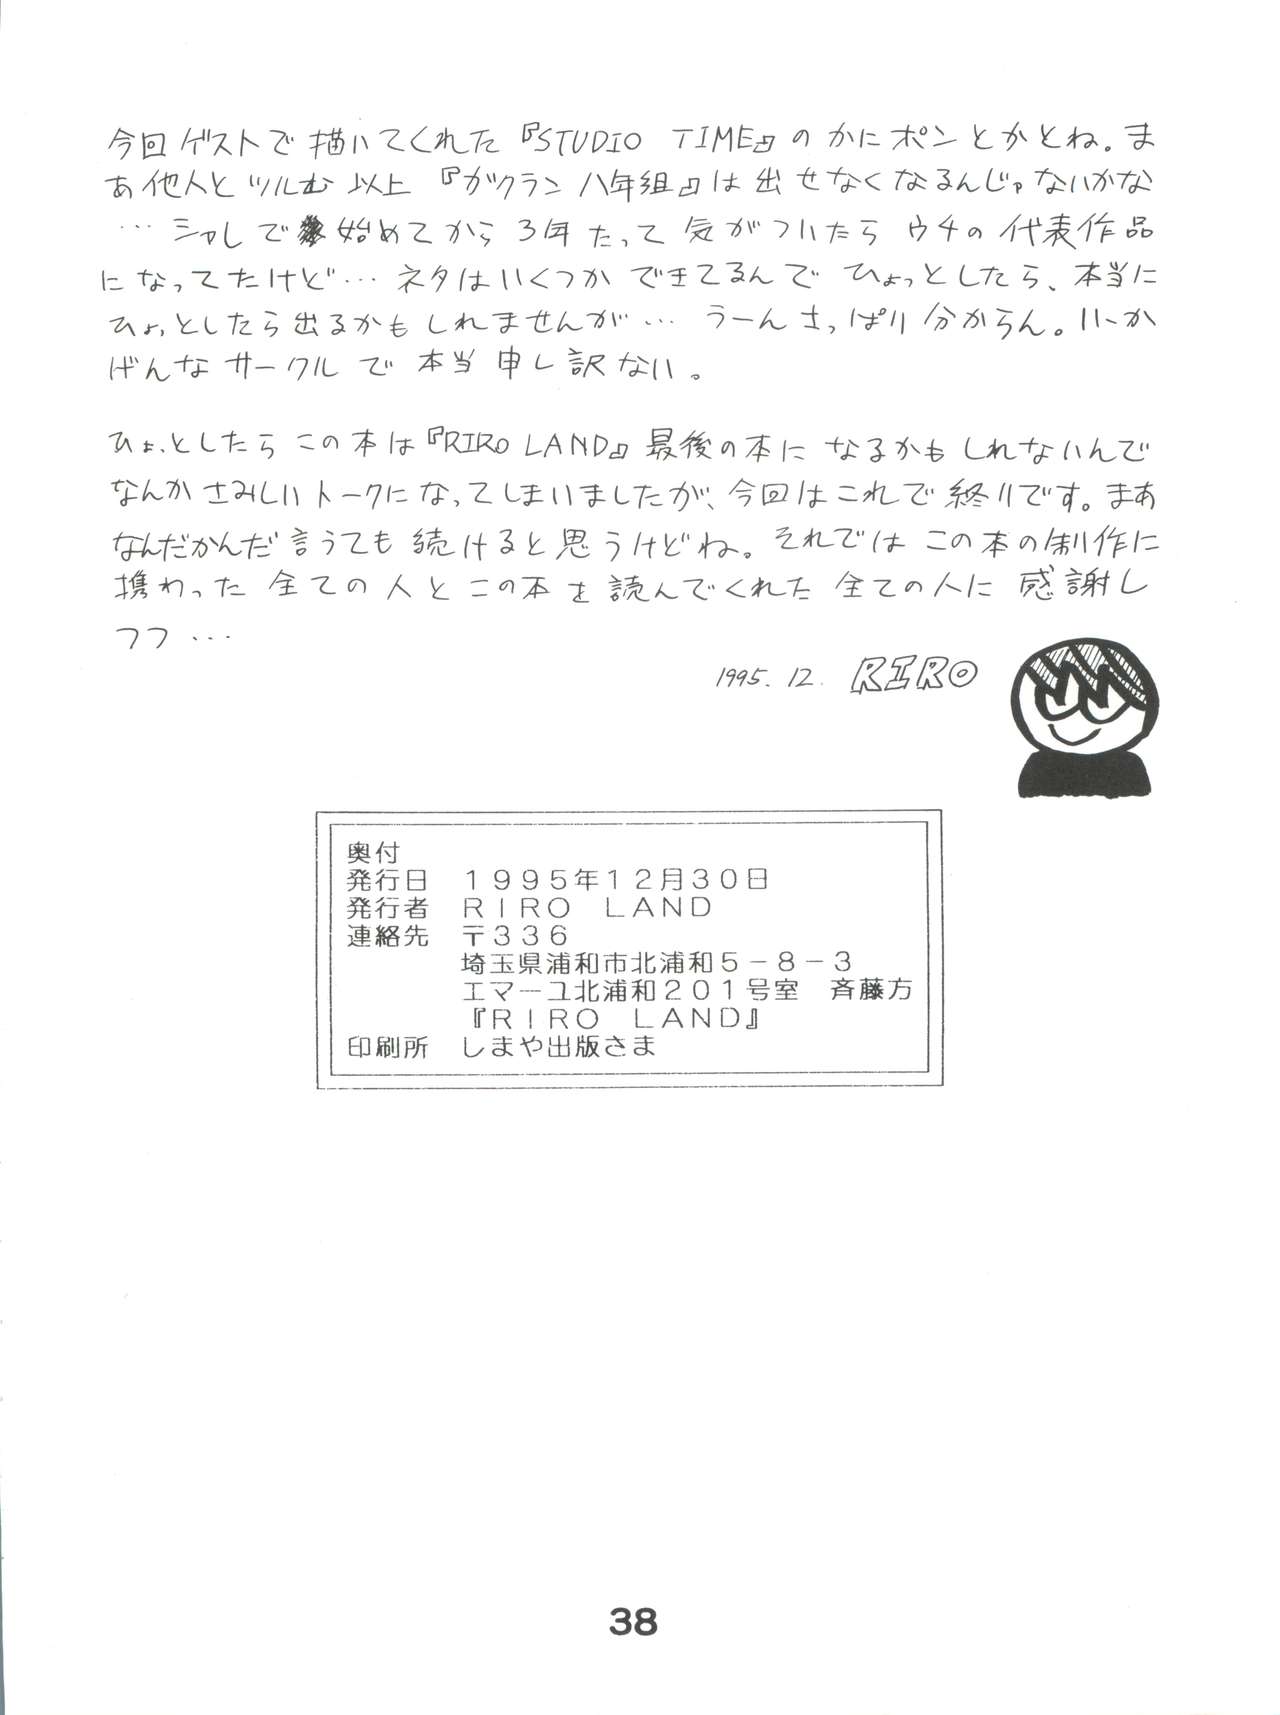 今回ゲストで描いてくれた『STUDIO TIME』のかにポンとかとね。ま
あ他人とツルむ以上『ガクラン八年組』は出せなくなるんじゃないかな
…シャレで始めてから3年たって気がついたらウチの代表作品
になってたけど…ネタはいくつかできてるんでひょっとしたら、本当に
ひょっとしたら出るかもしれませんが…うーんさっぱり分からん。いーか
げんなサークルで本当申し訳ない。
ひょっとしたらこの本は『RIRO LAND』最後の本になるかもしれないんで
なんかさみしいトークになってしまいましたが、今回はこれで終りです。まあ
なんだかんだ言うても続けると思うけどね。それではこの本の制作に
携わった全ての人とこの本を読んでくれた全ての人に感謝し
つつ…
1995. 12. RIRO
奥付
発行日 1995年12月30日
発行者 RIRO LAND
連絡先 〒336
埼玉県浦和市北浦和5-8-3
エマーユ北浦和201号室 斉藤方
『RIRO LAND』
印刷所 しまや出版さま
38